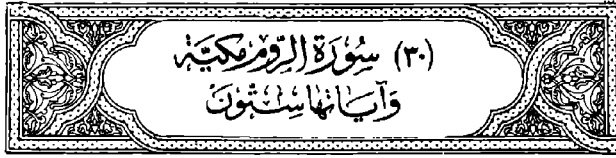 (٣٠) سُورَةُ الرُّومِ مَكِيَّة
وَآيَانُهَا سِتُّونَ